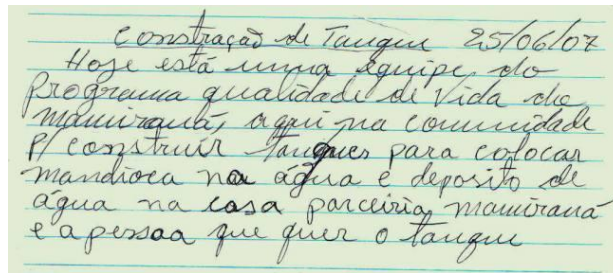 Constração de Tanque 25/06/07
Hoje está uma equipe do
programa qualidade de Vida do
mamirauá, aqui na comunidade
p/ construir tanques para colocar
mandioca na água e deposito de
água na casa parceiria mamirauá
e a pessoa que quer o tanque